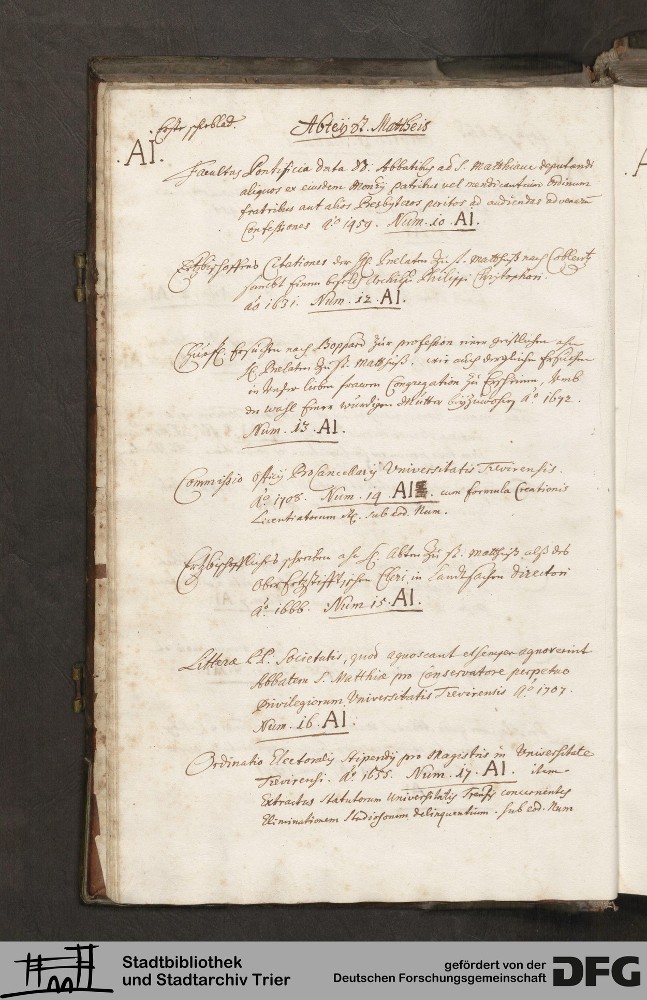 Erste schublad.
Abtey St. Mattheis
AI.
Facultas Pontificia data DD. Abbatibus ad S. Matthiam deputandi
aliquos ex eiusdem Monrij patribus vel mendicantium Ordinum
fratribus aut alios Presbyteros peritos ad audiendas advenarum
Confessiones Aº 1459. Num. 10. AI.
Ertzbischoffens Citationes der HH. Prelaten zu St. Mattheiß nach Coblentz
sambt einem Archiepi Philippi Christophori.
aº 1631. Num. 12. AI.
Churfl. Ersuchen nach Boppard zur profession einer geistlichen ahn
H. Prelaten zu St. Mattheiß. wie auch dergleichen Ersuchen
in Unser lieben frawen Congregation zu umb
der wahl einer würdigen Mutter beyzuwohnen aº 1672.
Num. 13. AI.
Commissio Officij ProCancellarij Universitatis Trevirensis.
Aº 1708. Num. 14. AI. cum formula Creationis
Licentiatorum etc. sub eod. Num.
Ertzbischoffliches schreiben ahn H. Abten zu St. Mattheiß alß des
Ober Ertzstifftischen Cleri in Landtsachen Directori
aº 1666. Num 15. AI.
Litteræ P.P. Societatis, quod agnoscant et semper agnoverint
Abbatem S. Matthiæ pro Conservatore perpetuo
Privilegiorum Universitatis Trevirensis Aº 1707.
Num. 16. AI.
Ordinatio Electoralis stipendij pro Magistris in Universitate
Trevirensi. Aº 1655. Num. 17. AI. item
Extractus Statutorum Universitatis Trensis concernentes
Eliminationem studiosorum delinquentium. sub eod. Num
Stadtbibliothek
und Stadtarchiv Trier
gefördert von der
Deutschen Forschungsgemeinschaft
DFG